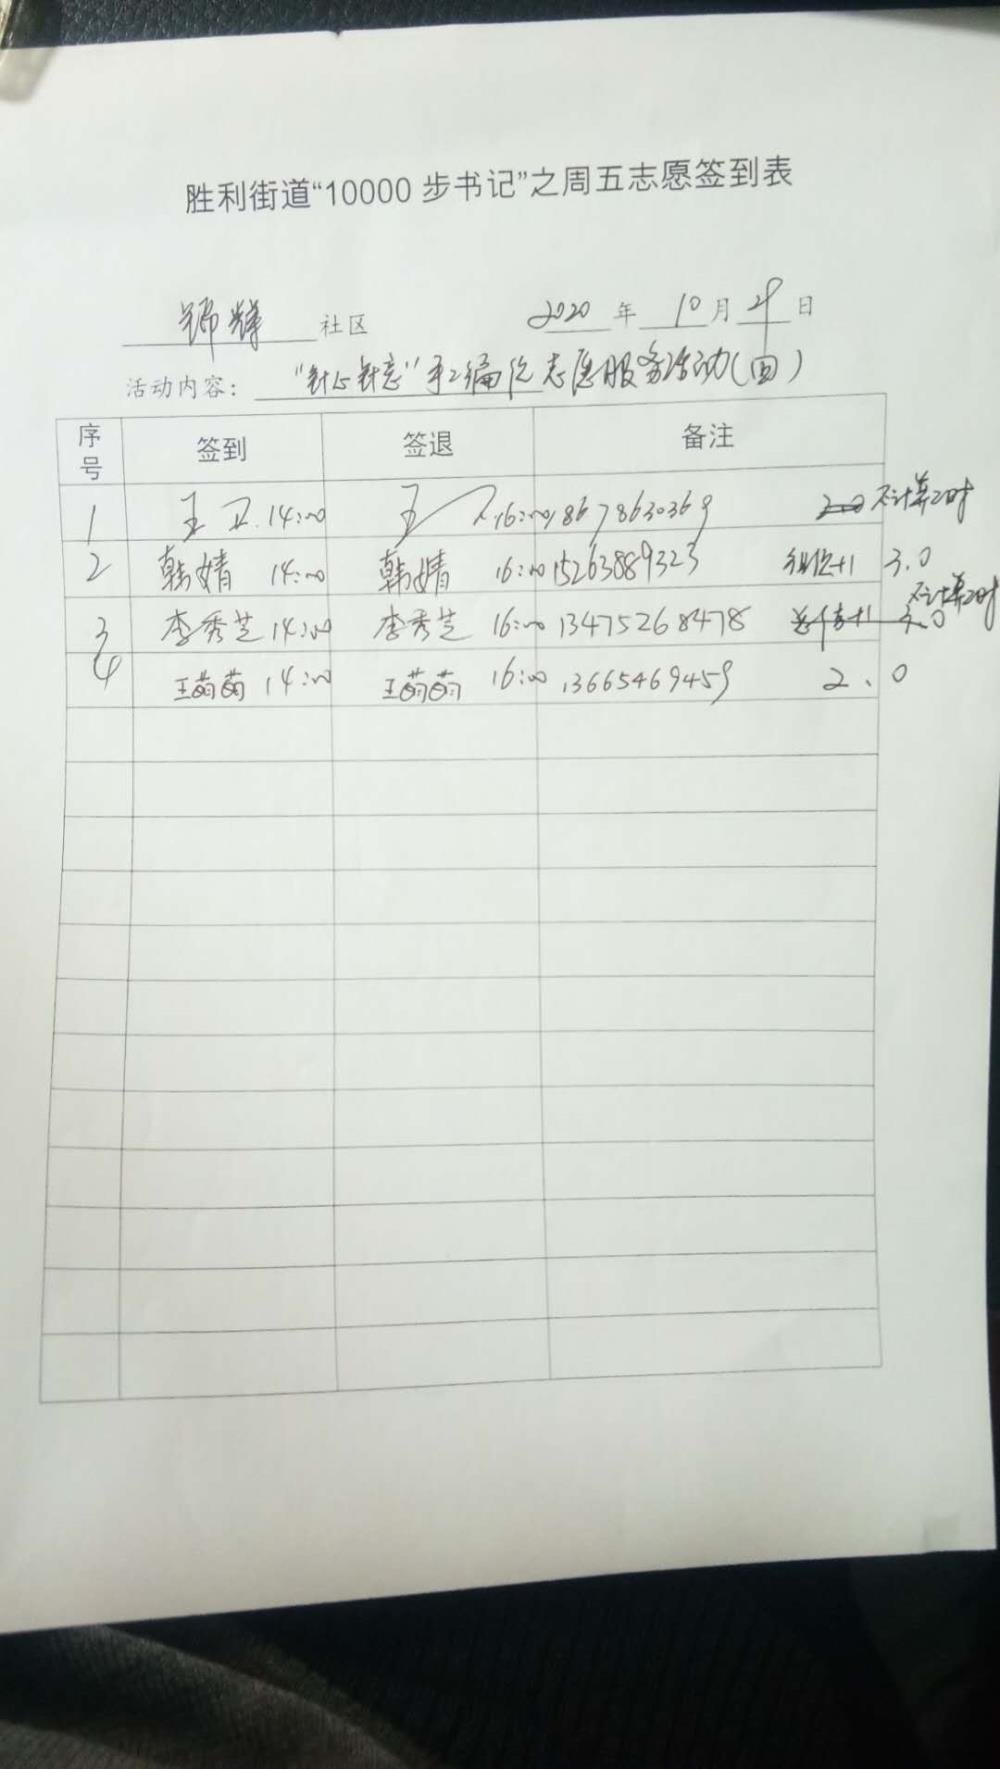 胜利街道“10000步书记”之周五志愿签到表
锦辉 社区 2020 年 10 月 29 日
活动内容： “针心针意”手工编织志愿服务活动(四)
序号 签到 签退 备注
1 王卫 14:00 王卫 16:00 18678630369 2.0 不计算工时
2 韩婧 14:00 韩婧 16:00 15263889323 组织+1 3.0
3 李秀芝 14:00 李秀芝 16:00 13475268478 3.0 不计算工时
4 王萌萌 14:00 王萌萌 16:00 13665469459 2.0